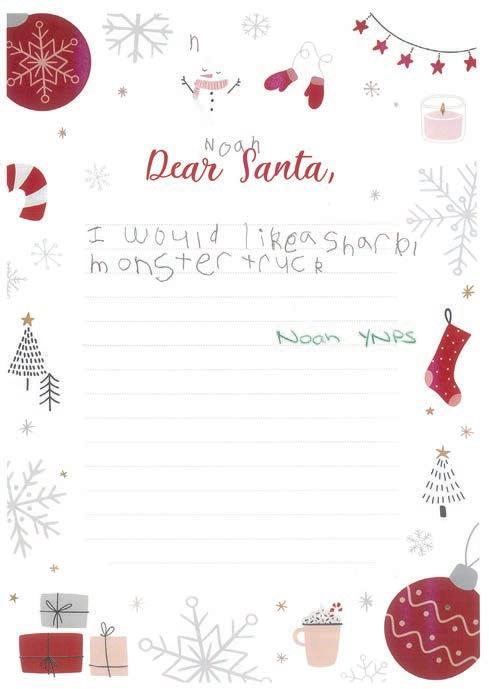 n
Noah
Dear Santa,
I would like a sharbi
monster truck
Noah YNPS